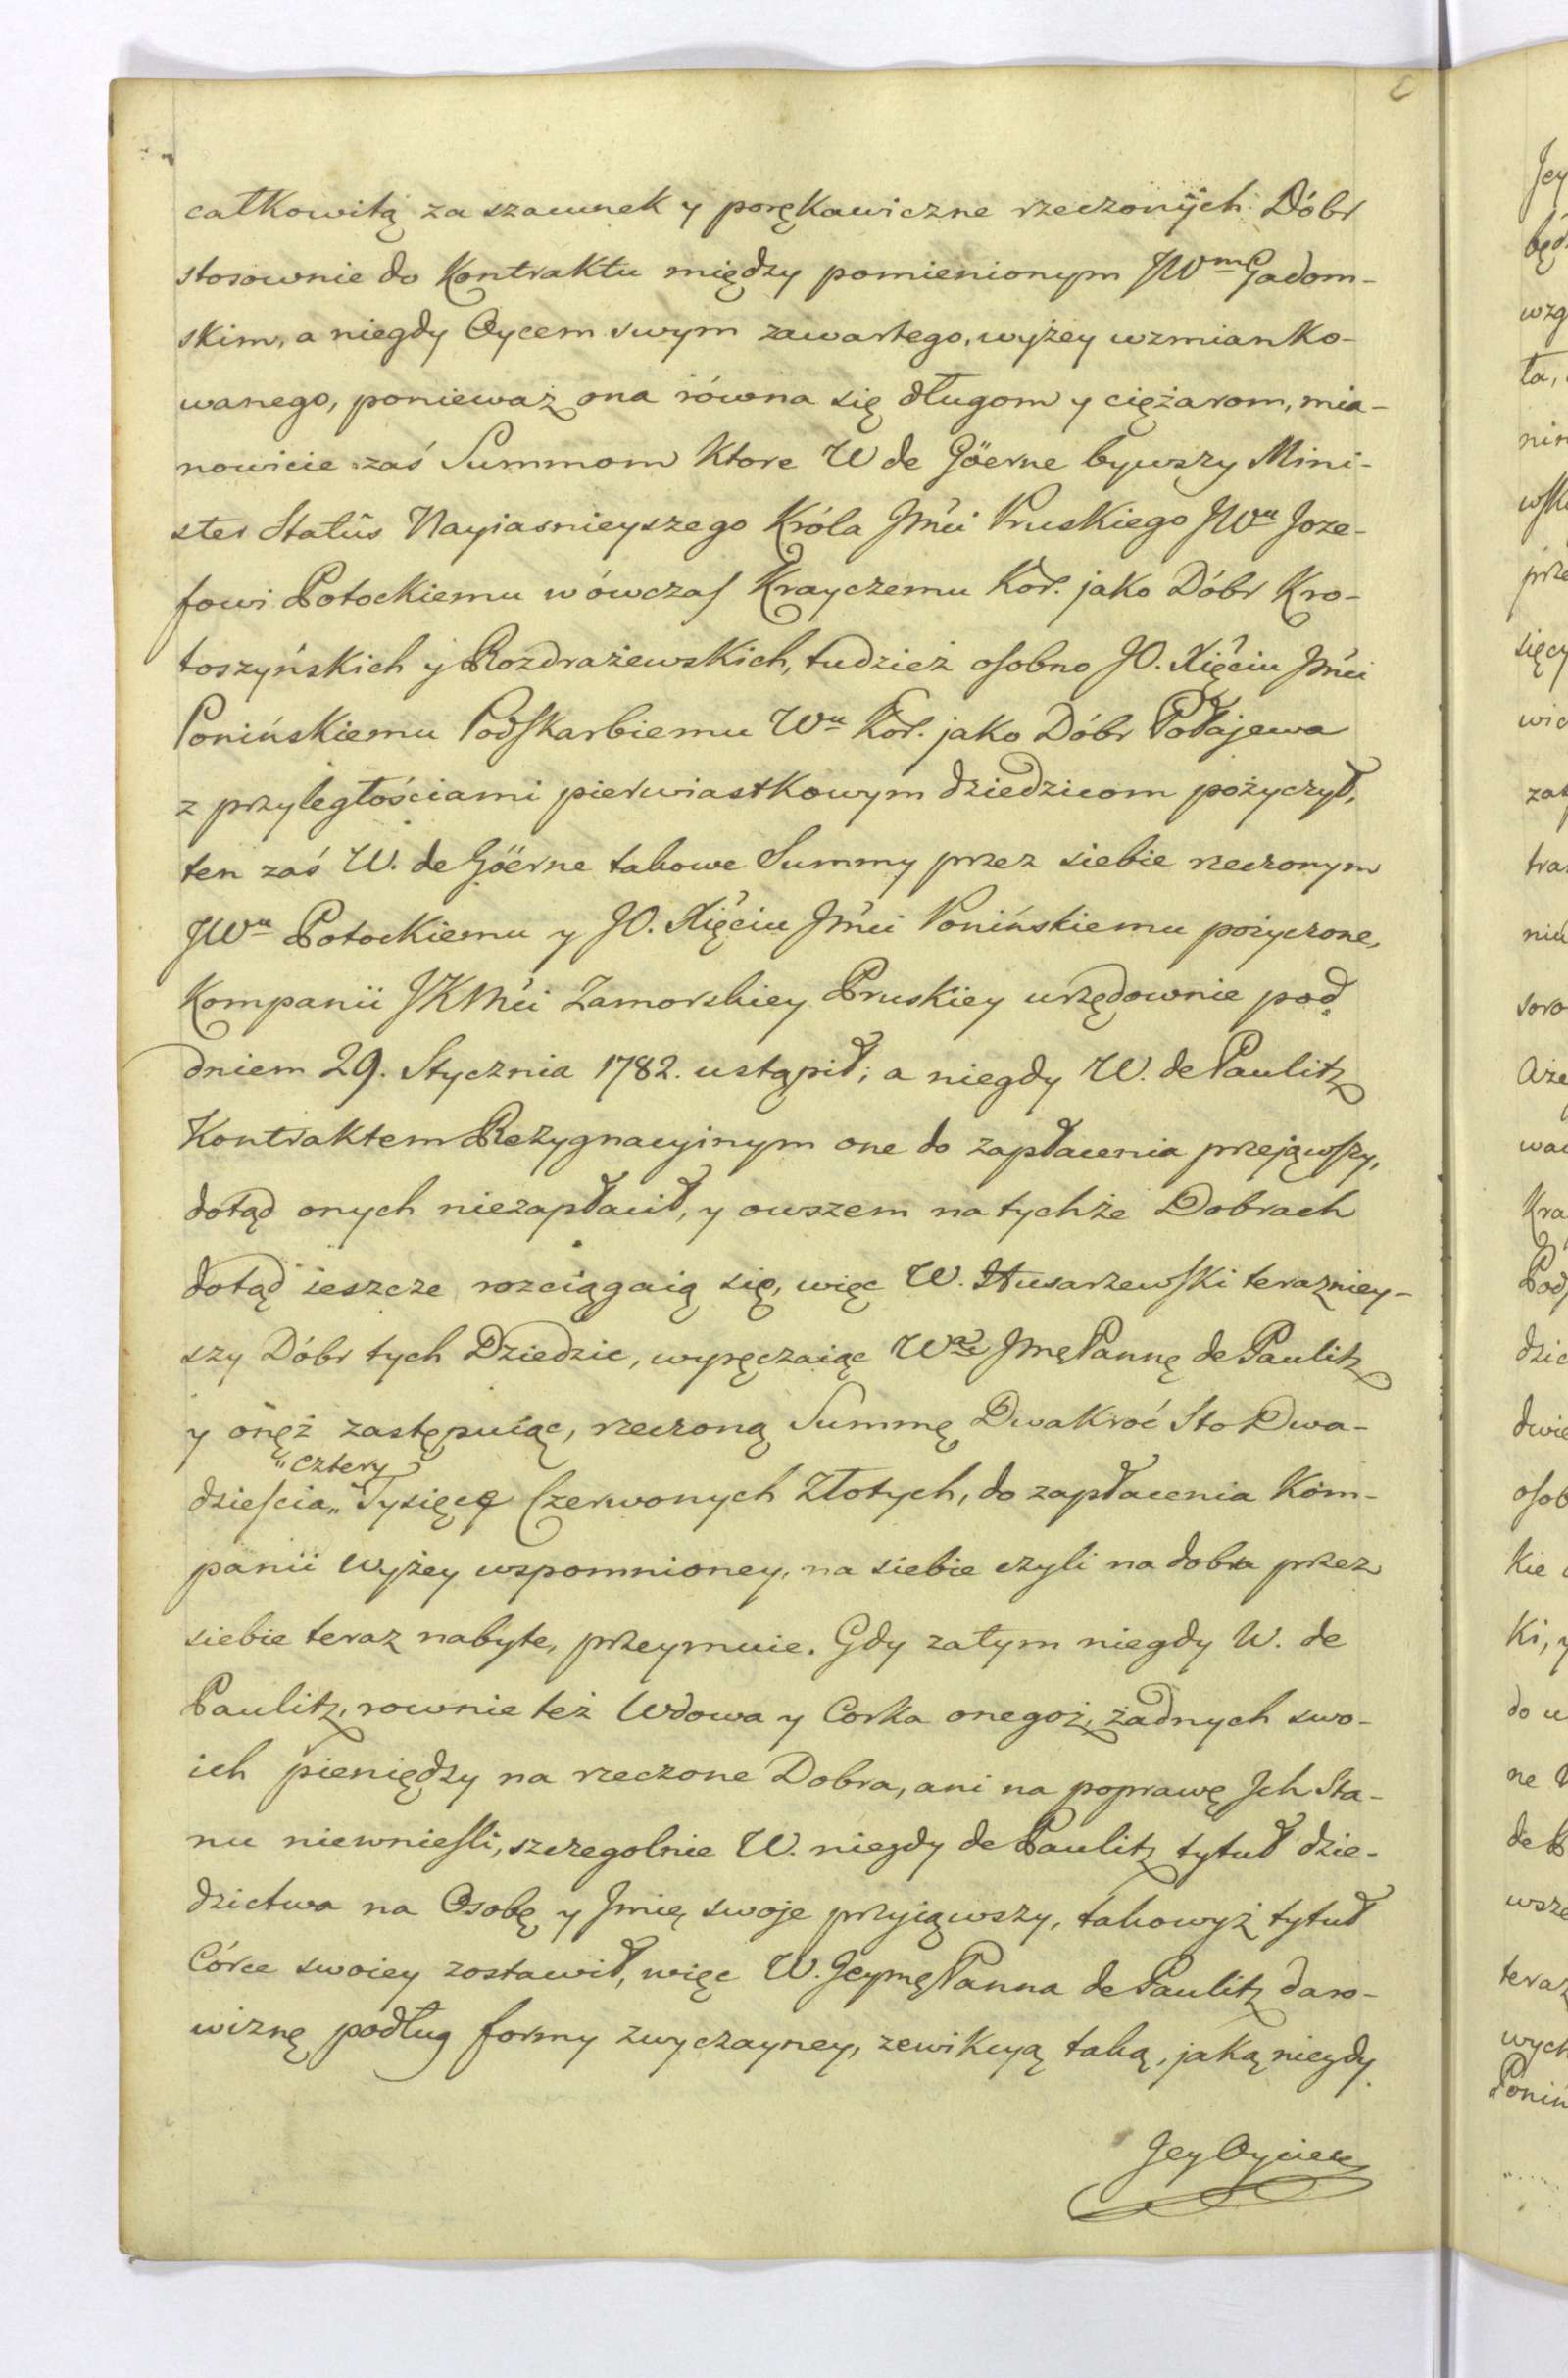 całkowitą za szacunek y porękawiczne rzeczonÿch Dóbr
stosownie do Kontraktu między pomienionym JWm Gadom-
skim, a niegdy Oycem swym zawartego, wyżey wzmianko-
wanego, ponieważ ona równa się długom y ciężarom, mia-
nowicie zaś Summom ktore W de Göerne bywszy Mini-
ster Statûs Nayiasnieyszego Króla Jmći Pruskiego JWu Joze-
fowi Potockiemu wówczas Krayczemu Kor. jako Dóbr Kro-
toszyńskich y Rozdrażewskich, tudzież osobno JO. Xięciu Jmći
Ponińskiemu Podskarbiemu Wu Kor. jako Dóbr Połajewa
z przyległościami pierwiastkowym dziedzicom pożyczył,
ten zaś W. de Göerne takowe Summy przez siebie rzeczonym
JWu Potockiemu y JO. Xięciu Jmći Ponińskiemu pożyczone,
Kompanii JKMći Zamorskiey Pruskiey urzędownie pod
dniem 29. Stycznia 1782. ustąpił; a niegdy W. de Paulitz
Kontraktem Rezygnacyinym one do zapłacenia przejąwszy,
dotąd onych niezapłacił, y owszem na tychże Dobrach
dotąd ieszcze rozciągaią się, więc W. Husarzewski terazniey-
szy Dóbr tych Dziedzic, wyręczaiąc Jmę Pannę de Paulitz
y onęż zastępuiąc, rzeczoną Summę Dwakroć Sto Dwa-
„cztery
dziescia„ Tysięcy Czerwonych Złotych, do zapłacenia Kom-
panii wyżey wspomnioney, na siebie czyli na dobra przez
siebie teraz nabyte, przeymuie. Gdy zatym niegdy W. de
Paulitz, rownie też Wdowa y Corka onegoż, żadnych swo-
ich pieniędzy na rzeczone Dobra, ani na poprawę Jch Sta-
nu niewniesli, szczegolnie W. niegdy de Paulitz tytuł dzie-
dzictwa na Osobę y Jmię swoje przyiąwszy, takowyż tytuł
Córce swoiey zostawił, więc W. Jeymę Panna de Paulitz daro-
wiznę podług formy zwyczayney, zewikcyą taką, jaką niegdy
Jey Oyciec